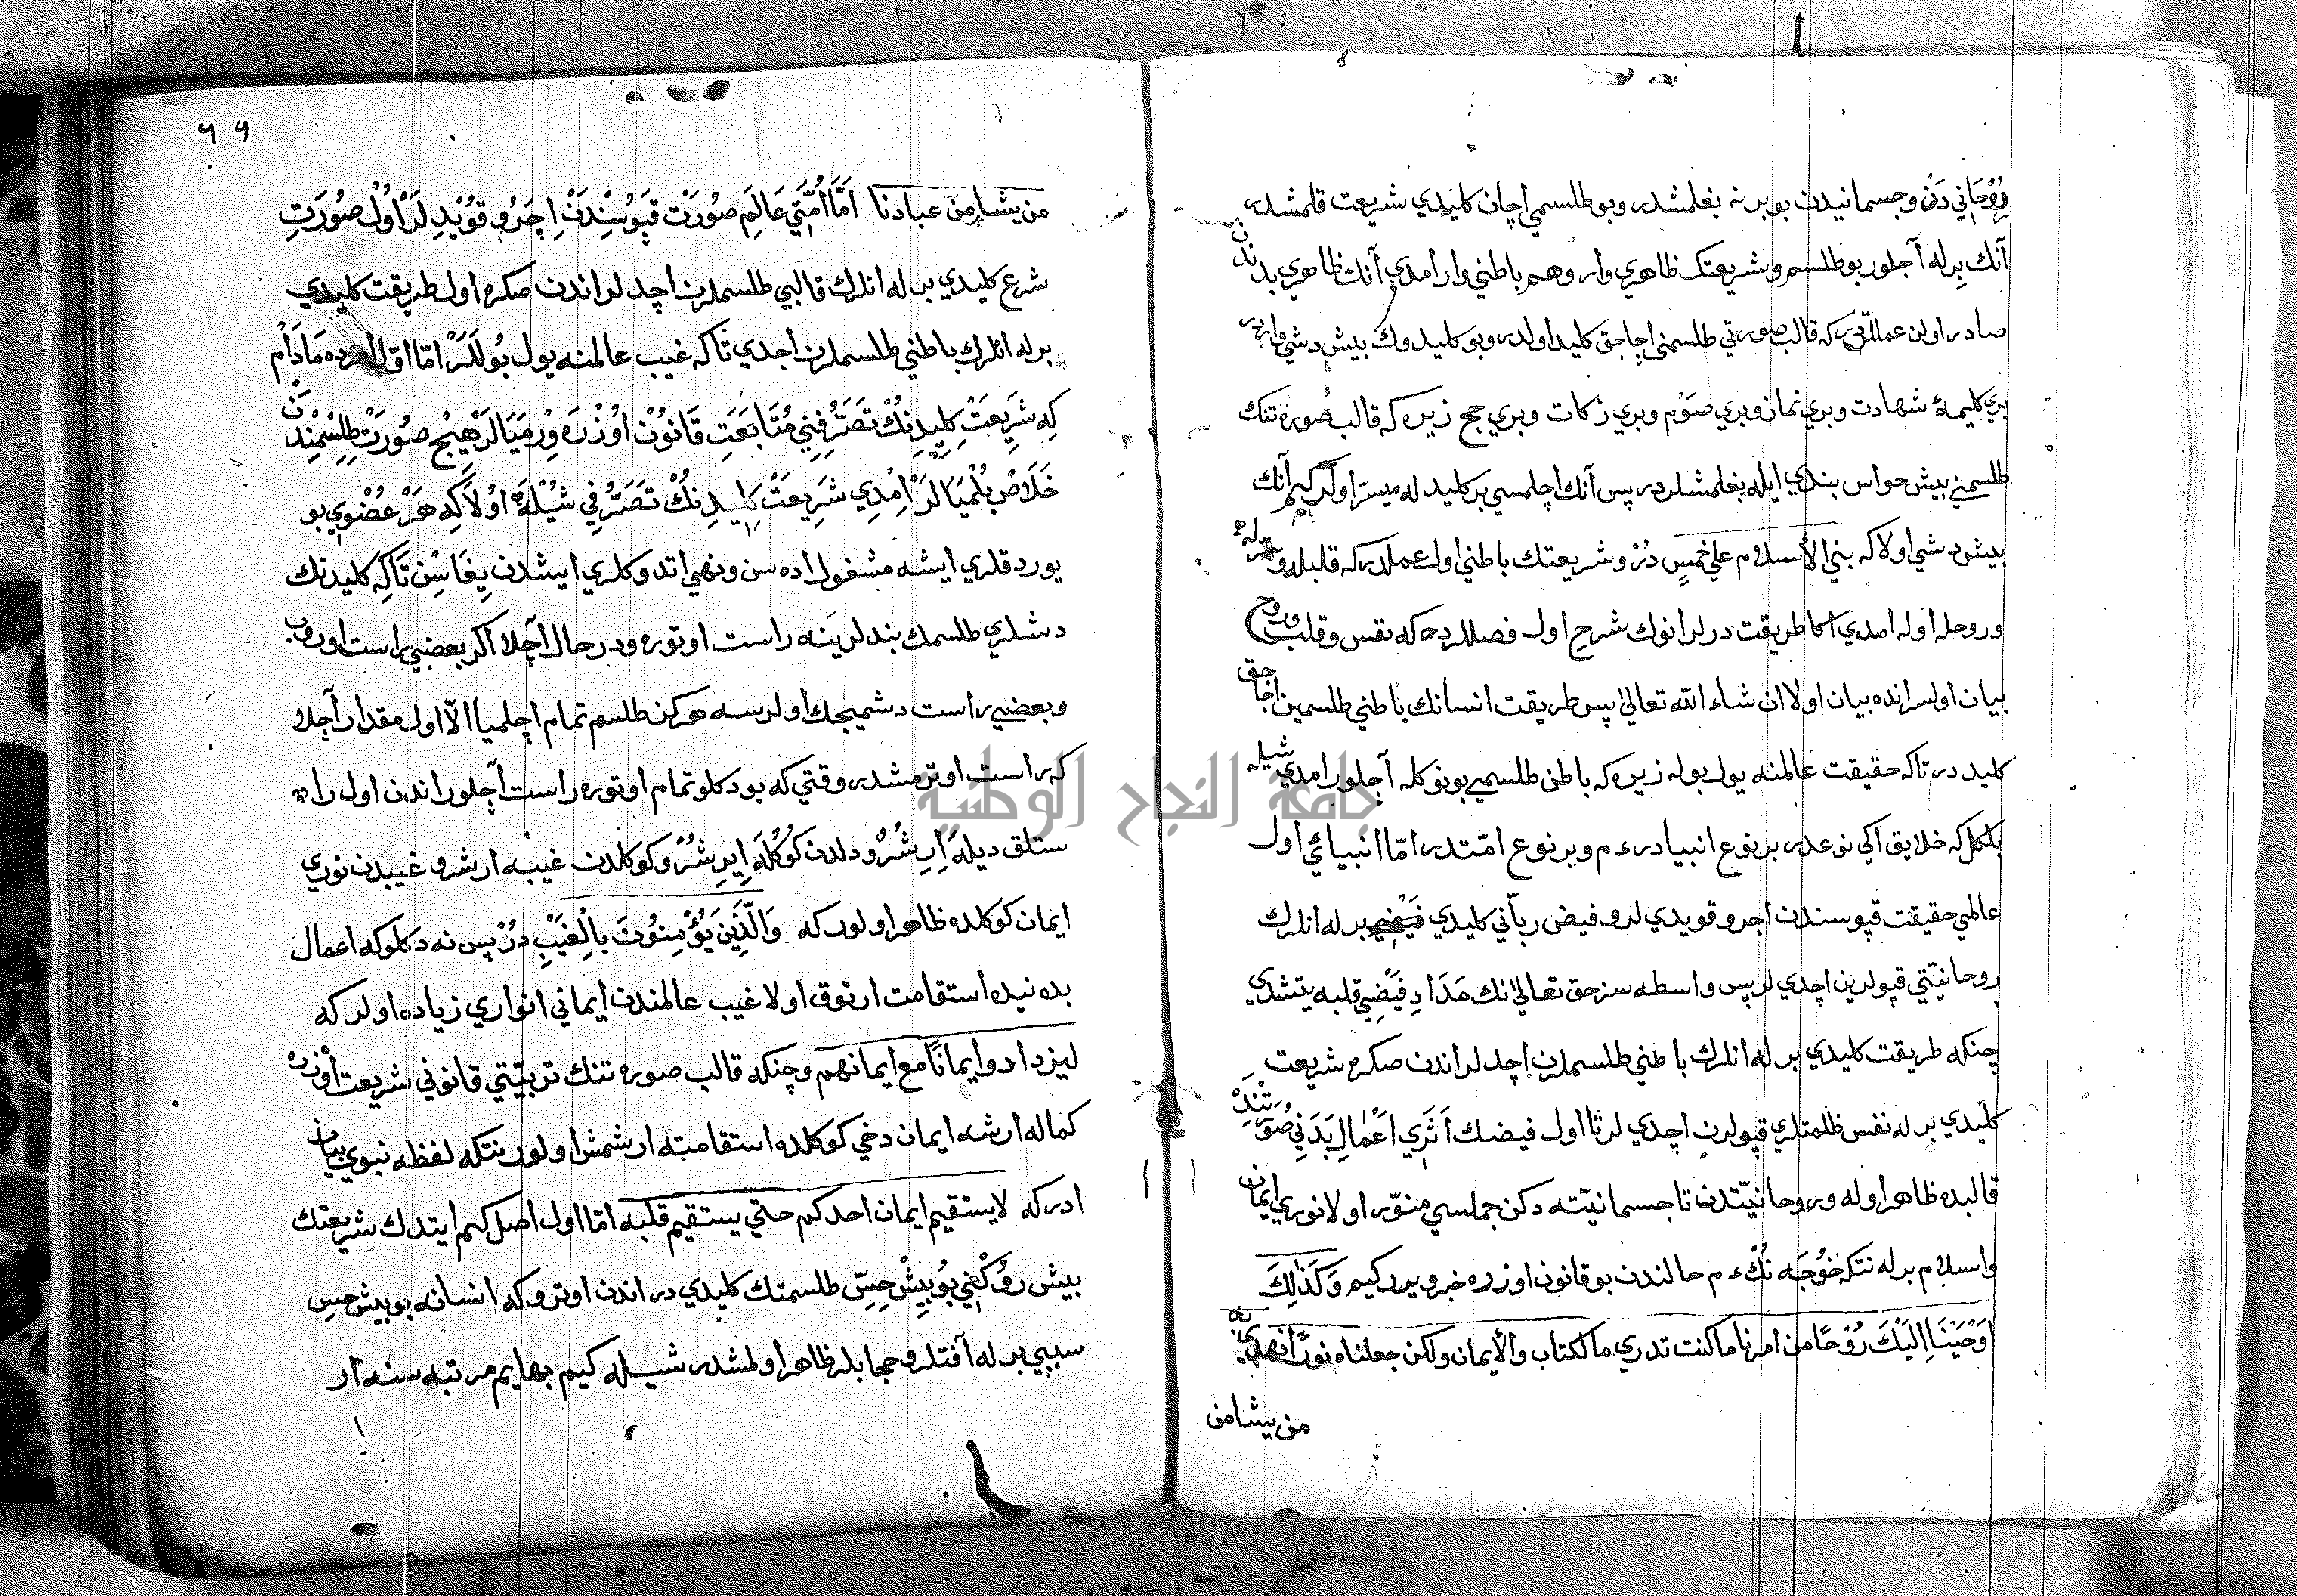 روُحَاني دَنْ وجسمانيدن بو برنه بغلمشدر وبو طلسمي اچان كليدي شريعت قلمشدر
آنك بِرله آجلور بو طلسم وشريعتك ظاهري وار وهم باطني وار امدي آنك ظاهري بدندن
صادر اولن عمللردر كه قالب صورتي طلسمنى اچاجق كليد اولدر وبو كليدوك بيش دشي واردر
بري كليمهٔ شهادت وبري نماز وبري صَوْم وبري زكات وبري حج زيره كه قالب صُوره تنك
طلسمني بيش حواس بندي ايله بغلمشلردر پس آنك اچلمسي بر كليد له ميسّر اولر كيم آنك
بيش دشي اولا كه بني الأسلام علي خمسٍ دُرْ وشريعتك باطني اول عملدر كه قلبله وسرله
وروحله اوله امدي اكا طريقت درلر انوك شرحِ اول فصللرده كه نفس وقلب وروح
بيان اولسر انده بيان اولا ان شاء الله تعالىٰ پس طريقت انسانك باطني طلسمين اچاجق
كليد در تاكه حقيقت عالمنه يول بوله زيره كه باطن طلسمي بونوكله آچلور امدي شيله
بلكل كه خلايق اكي نوعدر بر نوع انبيادر ءم وبر نوع امّتدر امّا انبيائي اول
عالمي حقيقت قپوسندن اچرو قويدي لرو فيض ربّاني كليدي برله انلرك
روحانيّتي قپولرين اچدي لر پس واسطه سز حق تعالىٰ نك مَدَادِ فَيْضِي قلبه يتشدي
چنكه طريقت كليدي برله انلرك باطني طلسملرن اچدلر اندن صكره شريعت
كليدي برله نفس ظلمتلري قپولرن اچدي لر تا اول فيضك اَثَرِي اَعْمالِ بَدَنِي صُوَرَتِنْدِ
قالبده ظاهر اوله وروحانيّتدن تا جسمانيّته دكن جملسي منوّر اولا نوري ايمان
واسلام برله نتكه خوُجَه نُكْ ءم حالندن بو قانون اوزره خبر ويرر كيم وَكَذٰلِكَ
اَوْحَيْنَا اِلَيْكَ رُوُحًا من امرنا ما كنت تدري ما لكتاب والأيمان ولكن جعلناه نورًا نهدي به
من يشا من
٦٦
من يشا من عبادنا اَمَّا اُمَّتِي عَالَمِ صوُرَتْ قپَوُسْنِدَنْ اِچَرُو قوُيْدِ لَرْ اوُلْ صوُرَتِ
شرع كليدي برله انلرك قالبي طلسملرن اچدلر اندن صكره اول طريقت كليدي
برله انلرك باطني طلسملرن اجدي تاكه غيب عالمنه يول بُولَلَرْ امّا اوّل مَادَامْ
كِه شَرِيعَتْ كِلِيدِ نُكْ تَصَرُّفِنِي مُتَابَعَتِ قَانوُنْ اوُزْرَه وِرْمَيَالَرْ هِيچْ صوُرَتْ طِلِسْمِنْدَنْ
خَلَاصْ بُلْمَيَالَرْ اِمْدِي شَرِيعَتْ كِليدِنُكْ تَصَرُّفِي شُيْلَه اوُلَا كِه هَرْ عُضْوِي بو
يوردقلري ايشه مشغول اده سن ونهي اتدوكلري ايشدن يِغَاسِنْ تَاكِه كليدنك
دشلري طلسمك بندلرِيَنه راست اوتوره ودر حال آچلا اكر بعضي راست اوروب
وبعضي راست دشميجك اولرسه هركز طلسم تمام اچلميا الّا اول مقدار آچلا
كه راست اوترمشدر وقتي كه بودكلو تمام اوتوره راست آچلور اندن اول را
ستلق ديلَه اِرِشُرْ و دلدن كوُكُلَه اِيرِشُرْ و كوكلدن غيبه ارشر و غيبدن نوري
ايمان كوكلده ظاهر اولور كه وَالَّذِّينَ يَؤُمِنوُنَ بالْغَيْبِ دُرْ پس نه دكلوكه اعمال
بدنيده استقامت ارتوق اولا غيب عالمندن ايماني انواري زياده اولر كه
ليزدادوا ايمانًا مع ايمانهم وچنكه قالب صوره تنك تربيّتي قانوني شريعت اوُزره
كماله ارشه ايمان دخي كوكلده استقامته ارشمش اولور نتكه لفظه نبوي بيان
ادر كه لا يستقيم ايمان احدكم حتي يستقيم قلبه امّا اول اصل كم ايتدك شريعتك
بيش رُوُكْنِي بُو بِيشْ حِسِّ طلسمتك كليدي در اندن اوترو كه انسانه بو بيش حِسِ
سببي برله آفتلر و حجابلر ظاهر اولمشدر شيله كيم بهايم مرتبه سنه ار